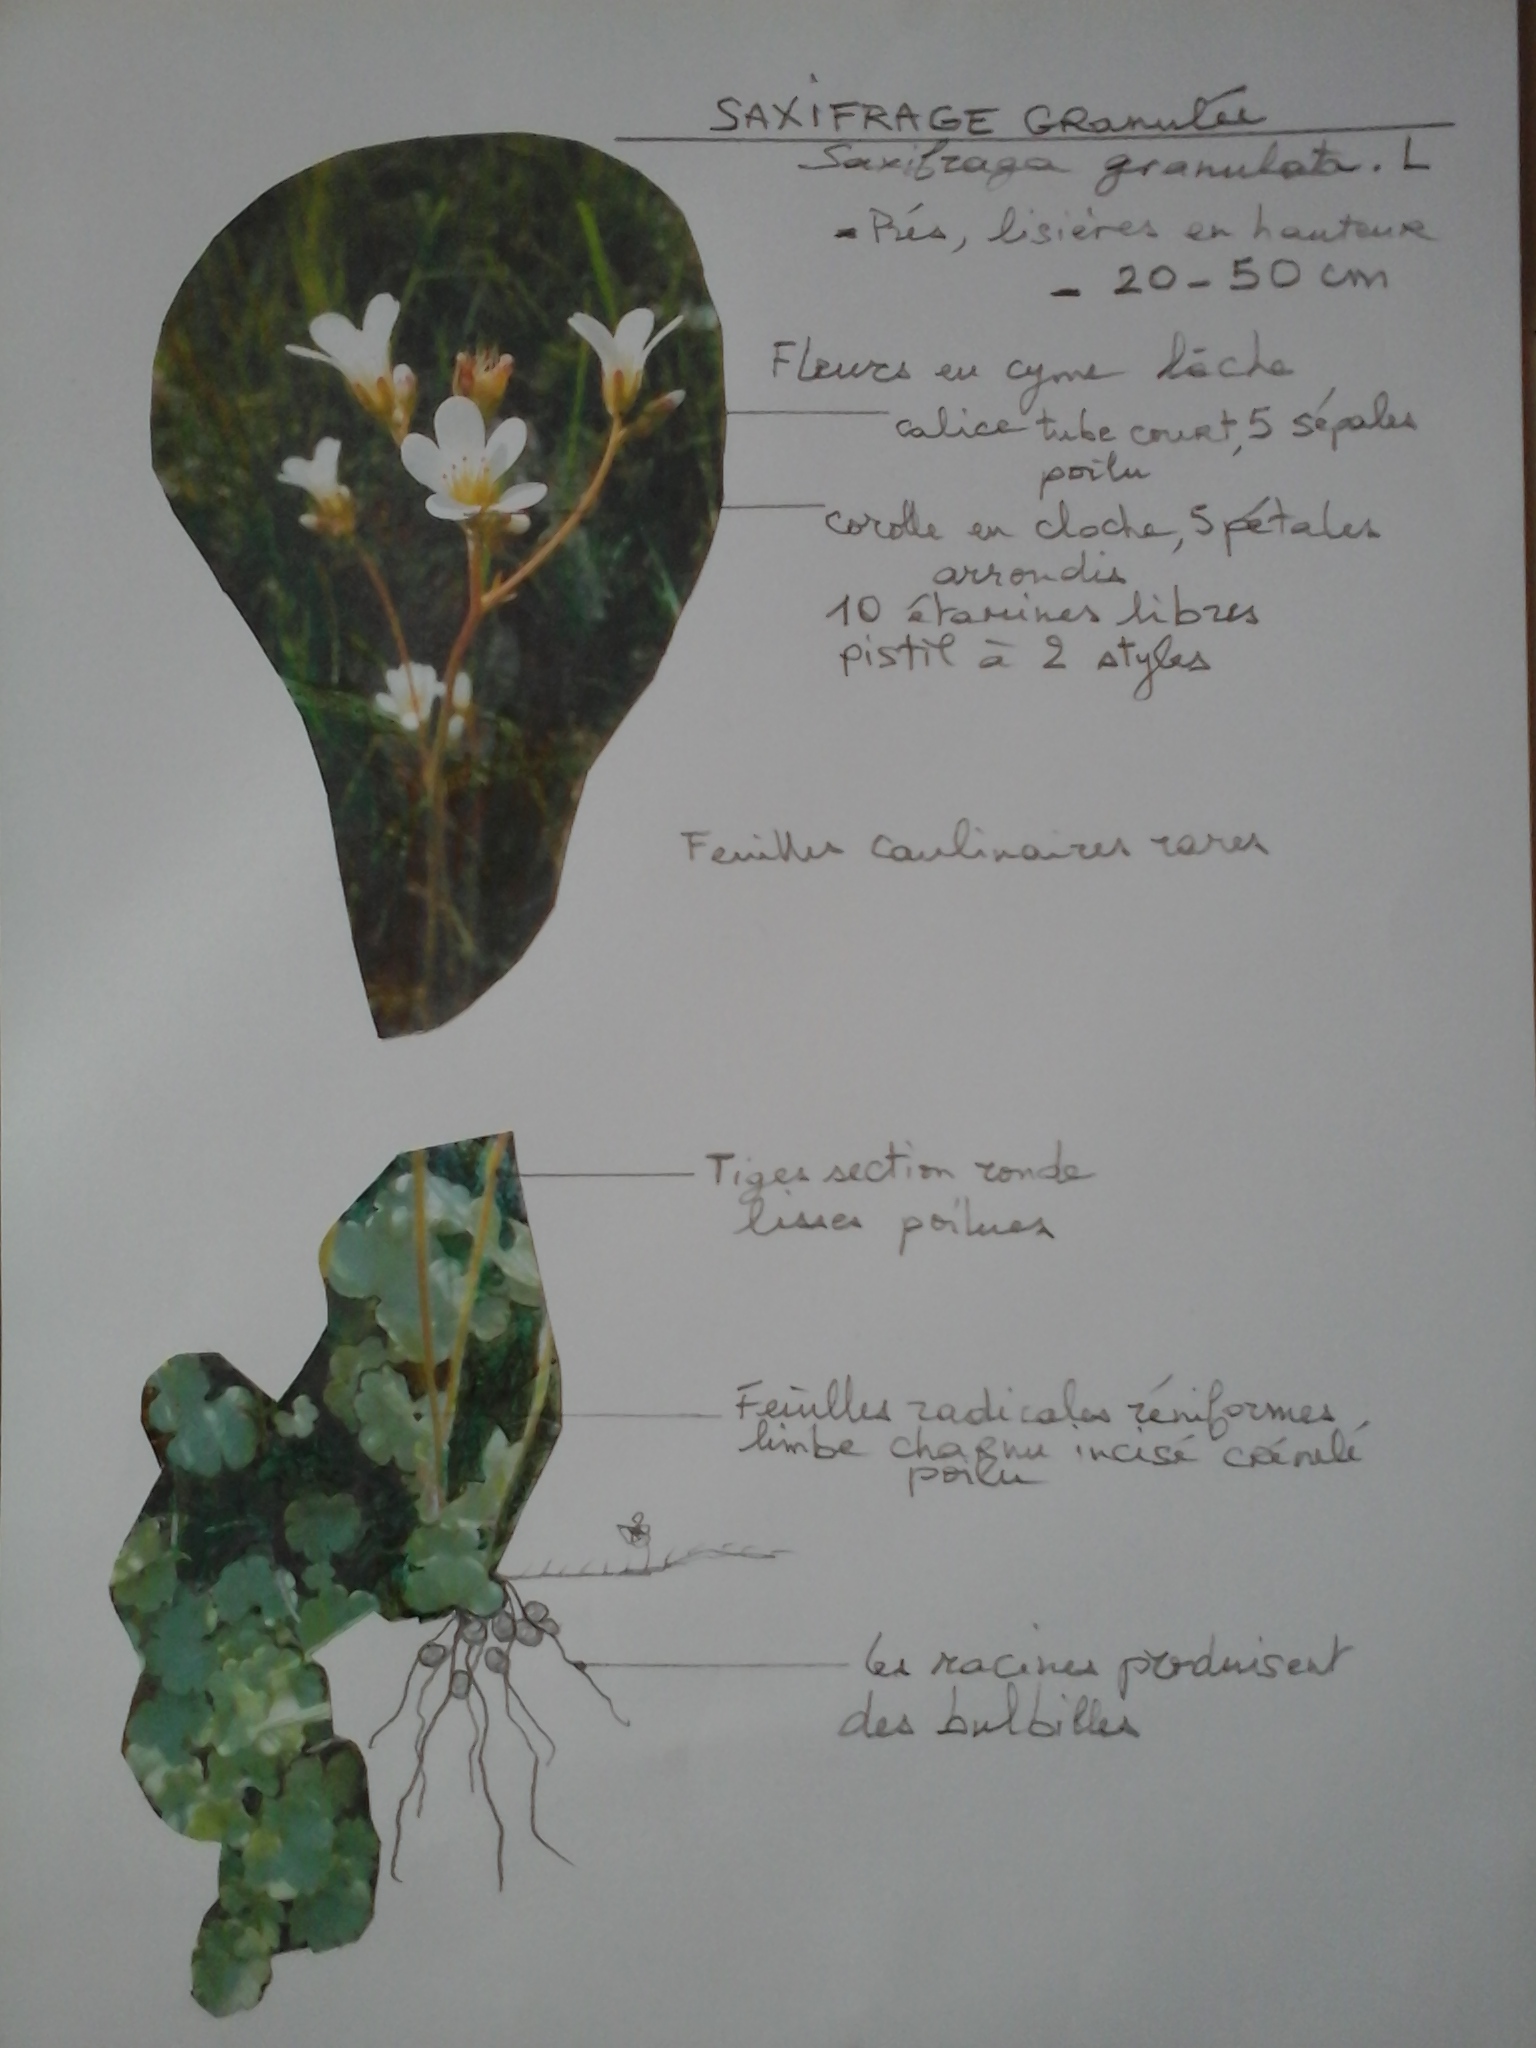 SAXIFRAGE GRanulée
Saxifraga granulata. L
- Prés, lisières en hauteur
- 20-50 cm
Fleurs en cyme lâche
calice tube court, 5 sépales
poilu
corolle en cloche, 5 pétales
arrondis
10 étamines libres
pistil à 2 styles
Feuilles caulinaires rares
Tiges section ronde
lisses poilues
Feuilles radicales réniformes
limbe charnu incisé crénelé
poilu
les racines produisent
des bulbilles